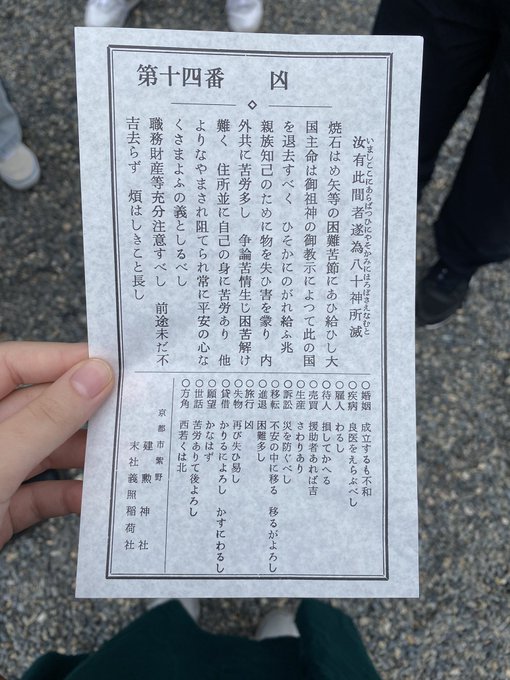 第十四番　凶
いましここにあらばつひにやそかみにほろぼさえなむと
汝有此間者遂為八十神所滅
焼石はめ矢等の困難苦節にあひ給ひし大
国主命は御祖神の御教示によつて此の国
を退去すべく　ひそかにのがれ給ふ兆
親族知己のために物を失ひ害を蒙り　内
外共に苦労多し　争論苦情生じ困苦解け
難く　住所並に自己の身に苦労あり　他
よりなやまされ阻てられ常に平安の心な
くさまよふの義としるべし
職務財産等充分注意すべし　前途未だ不
吉去らず　煩はしきこと長し
〇婚姻　成立するも不和
〇疾病　良医をえらぶべし
〇雇人　わるし
〇待人　損してかへる
〇売買　援助者あれば吉
〇生産　さわりあり
〇訴訟　災を防ぐべし
〇移転　不安の中に移る　移るがよろし
〇進退　困難多し
〇旅行　凶
〇失物　再び失ひ易し
〇貸借　かりるによろし　かすにわるし
〇願望　かなはず
〇世話　苦労ありて後よろし
〇方角　西若くは北
京都市紫野
建勲神社
末社義照稲荷社